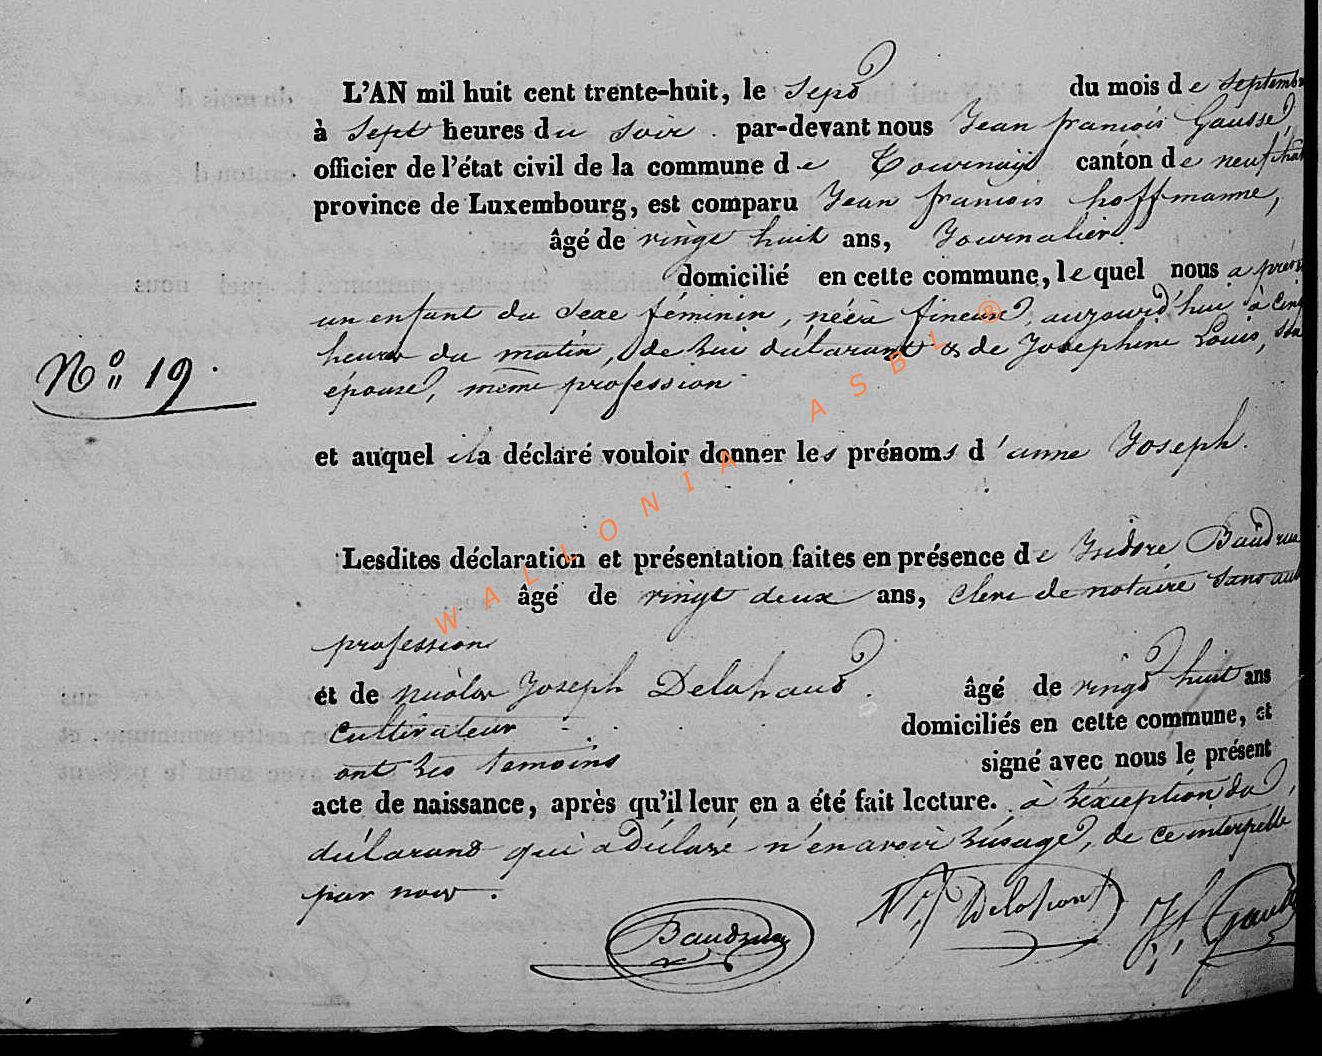 L'AN mil huit cent trente-huit, le sept du mois de septemb
à sept heures du soir. par-devant nous Jean françois Gausse,
officier de l'état civil de la commune de Tournay canton de neufchâ
province de Luxembourg, est comparu Jean françois hoffmanne,
âgé de vingt huit ans, Journalier
domicilié en cette commune, lequel nous a prés
un enfant du Sexe féminin, née à fineuse, aujourd'hui à cinq
heures du matin, de lui déclarant & de Josephine Louis, son
N.o 19.
épouse, même profession
et auquel il a déclaré vouloir donner les prénoms d'anne Joseph.
Lesdites déclaration et présentation faites en présence de Isidore Baudru
âgé de vingt deux ans, clerc de notaire sans aut
profession
et de nicolas Joseph Delahaut. âgé de vingt huit ans
cultivateur domiciliés en cette commune, et
ont les temoins signé avec nous le présent
acte de naissance, après qu'il leur en a été fait lecture. à l'exception du
déclarant qui a déclaré n'en avoir l'usage, de ce interpellé
par nous.
WALLONIA ASBL ®